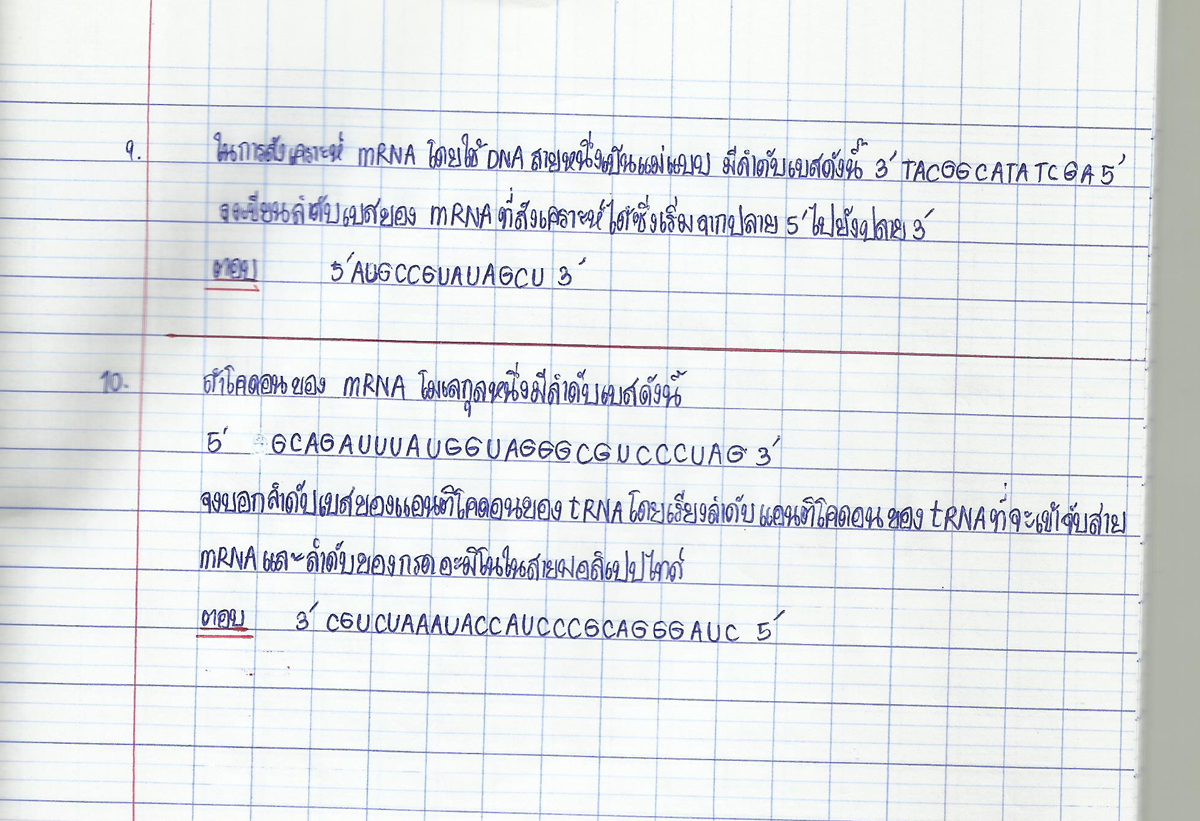 9. ในการสังเคราะห์ mRNA โดยใช้ DNA สายหนึ่งเป็นแม่แบบ มีลำดับเบสดังนี้ 3′ TACGGCATATCGA 5′
จงเขียนลำดับเบสของ mRNA ที่สังเคราะห์ได้ซึ่งเริ่มจากปลาย 5′ ไปยังปลาย 3′
ตอบ 5′ AUGCCGUAUAGCU 3′
10. ถ้าโคดอนของ mRNA โมเลกุลหนึ่งมีลำดับเบสดังนี้
5′ GCAGAUUUAUGGUAGGGCGUCCCUAG 3′
จงบอกลำดับเบสของแอนติโคดอนของ tRNA โดยเรียงลำดับแอนติโคดอนของ tRNA ที่จะเข้าจับสาย
mRNA และลำดับของกรดอะมิโนในสายพอลิเปปไทด์
ตอบ 3′ CGUCUAAAUACCAUCCCGCAGGGAUC 5′